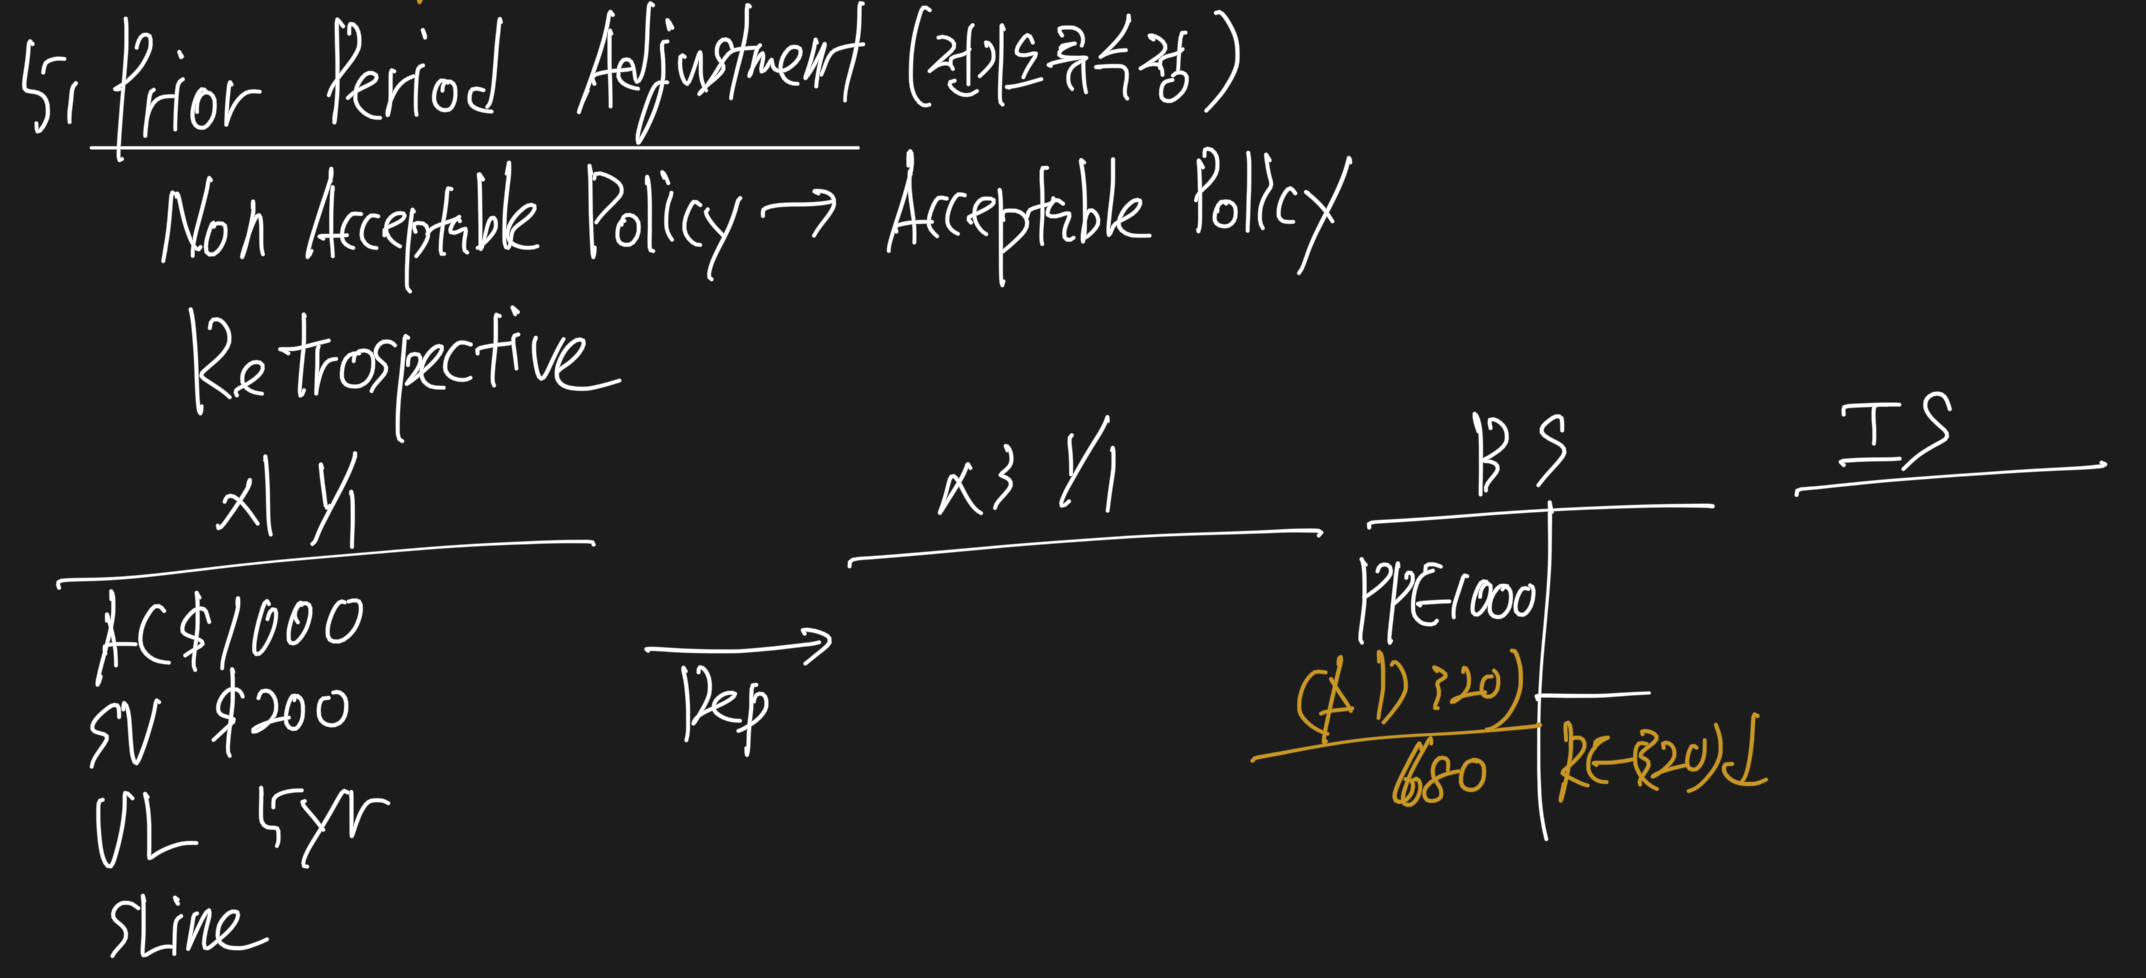 5. Prior Period Adjustment (전기오류수정)
Non Acceptable Policy → Acceptable Policy
Retrospective
x1 1/1
AC $1000
SV $200
UL 5yr
SLine
→
Dep
x3 1/1
BS
PPE 1000
(AD 320)
680
RE (320)↓
IS